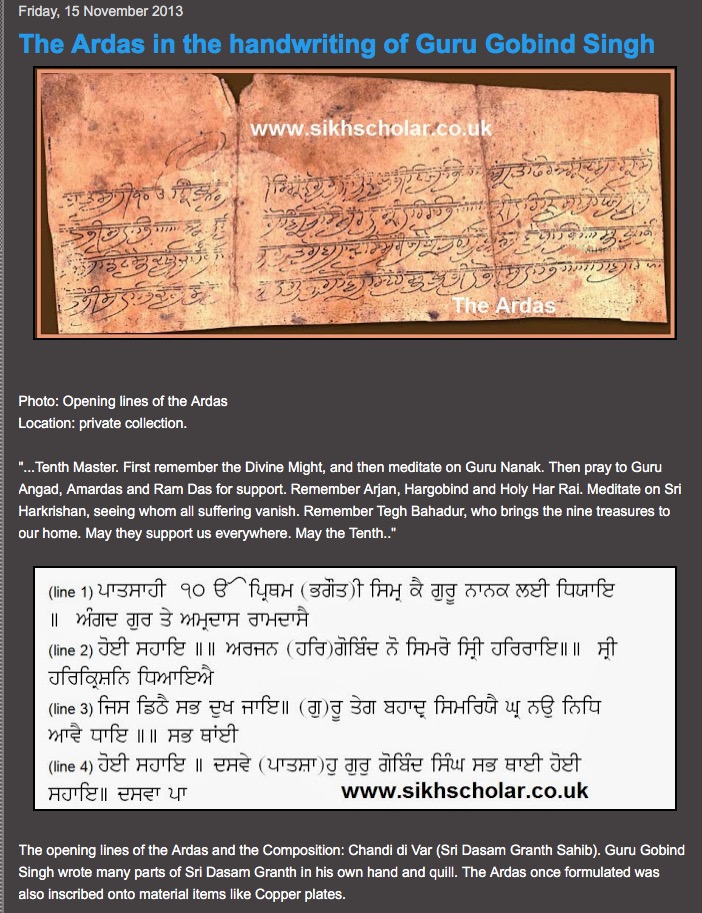 Friday, 15 November 2013
The Ardas in the handwriting of Guru Gobind Singh
www.sikhscholar.co.uk
The Ardas
Photo: Opening lines of the Ardas
Location: private collection.
"...Tenth Master. First remember the Divine Might, and then meditate on Guru Nanak. Then pray to Guru
Angad, Amardas and Ram Das for support. Remember Arjan, Hargobind and Holy Har Rai. Meditate on Sri
Harkrishan, seeing whom all suffering vanish. Remember Tegh Bahadur, who brings the nine treasures to
our home. May they support us everywhere. May the Tenth.."
(line 1) ਪਾਤਸਾਹੀ ੧੦ ੴ ਪ੍ਰਿਥਮ (ਭਗੌਤ)ੀ ਸਿਮ੍ਰ ਕੈ ਗੁਰੂ ਨਾਨਕ ਲਈ ਧਿਯਾਇ
॥ ਅੰਗਦ ਗੁਰ ਤੇ ਅਮ੍ਰਦਾਸ ਰਾਮਦਾਸੈ
(line 2) ਹੋਈ ਸਹਾਇ ॥॥ ਅਰਜਨ (ਹਰਿ)ਗੋਬਿੰਦ ਨੋ ਸਿਮਰੋ ਸ੍ਰੀ ਹਰਿਰਾਇ॥॥ ਸ੍ਰੀ
ਹਰਿਕ੍ਰਿਸ਼ਨਿ ਧਿਆਇਐ
(line 3) ਜਿਸ ਡਿਠੈ ਸਭ ਦੁਖ ਜਾਇ॥ (ਗੁ)ਰੂ ਤੇਗ ਬਹਾਦ੍ਰ ਸਿਮਰਿਯੈ ਘ੍ਰ ਨਉ ਨਿਧਿ
ਆਵੈ ਧਾਇ ॥॥ ਸਭ ਥਾਂਈ
(line 4) ਹੋਈ ਸਹਾਇ ॥ ਦਸਵੇ (ਪਾਤਸ਼ਾ)ਹੁ ਗੁਰੁ ਗੋਬਿੰਦ ਸਿੰਘ ਸਭ ਥਾਈ ਹੋਈ
ਸਹਾਇ॥ ਦਸਵਾ ਪਾ www.sikhscholar.co.uk
The opening lines of the Ardas and the Composition: Chandi di Var (Sri Dasam Granth Sahib). Guru Gobind
Singh wrote many parts of Sri Dasam Granth in his own hand and quill. The Ardas once formulated was
also inscribed onto material items like Copper plates.